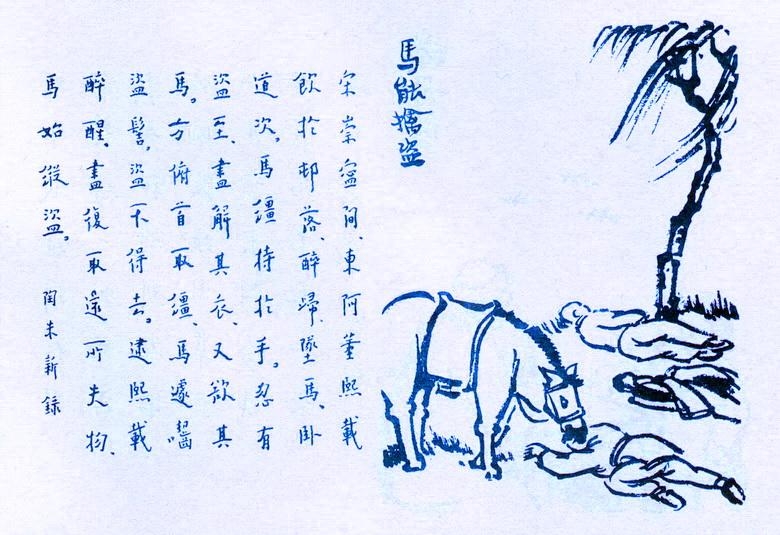 馬能擒盜
宋崇寧間、東阿董熙載
飲於邨落、醉歸、墜馬、臥
道次。馬韁持於手。忽有
盜至、盡解其衣、又欲其
馬。方俯首取韁、馬遽嚙
盜髻。盜不得去。逮熙載
醉醒、盡復取還所失物、
馬始縱盜。 陶朱新錄